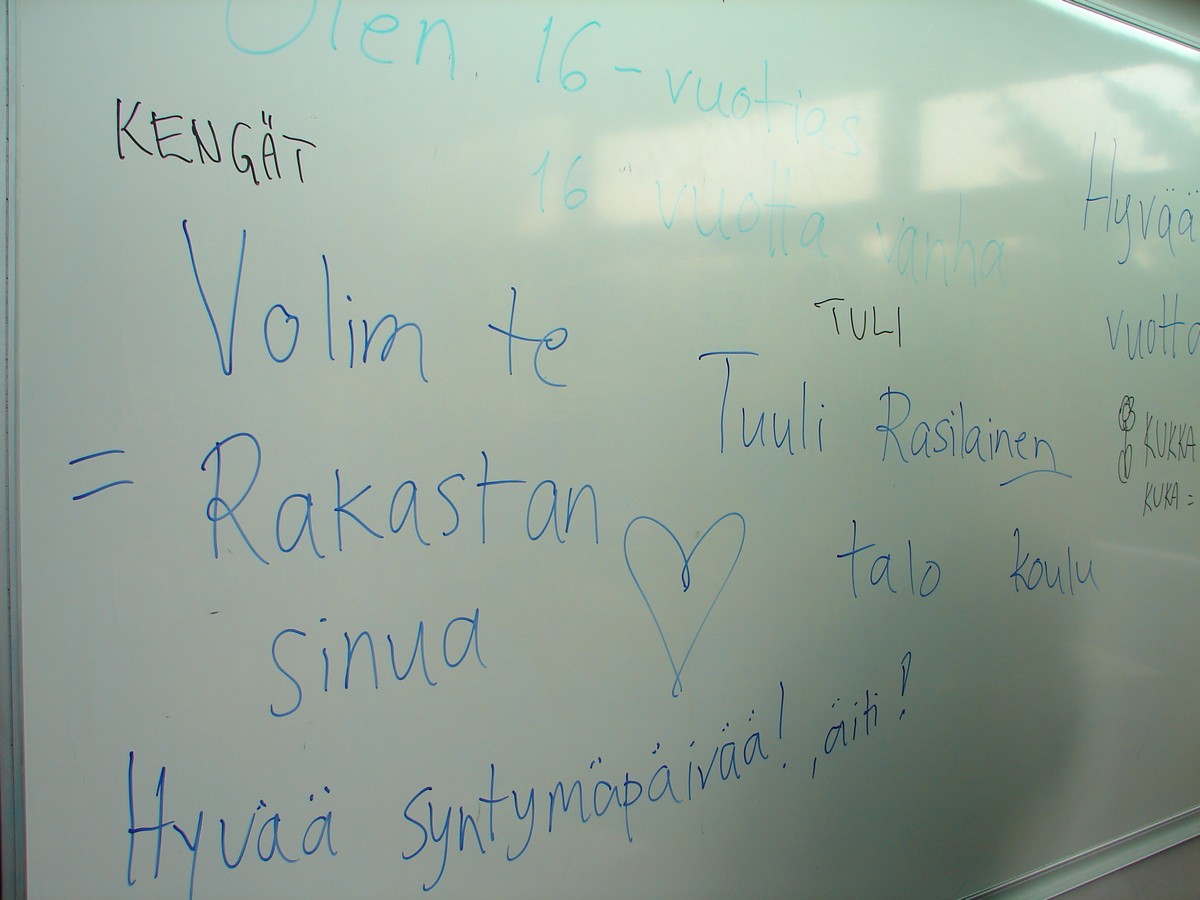 Olen 16-vuotias
KENGÄT
16 vuotta vanha
Hyvää
Volim te
TULI
vuotta
Tuuli Rasilainen
KUKKA
= Rakastan
KUKA =
talo koulu
sinua
Hyvää syntymäpäivää! , äiti!